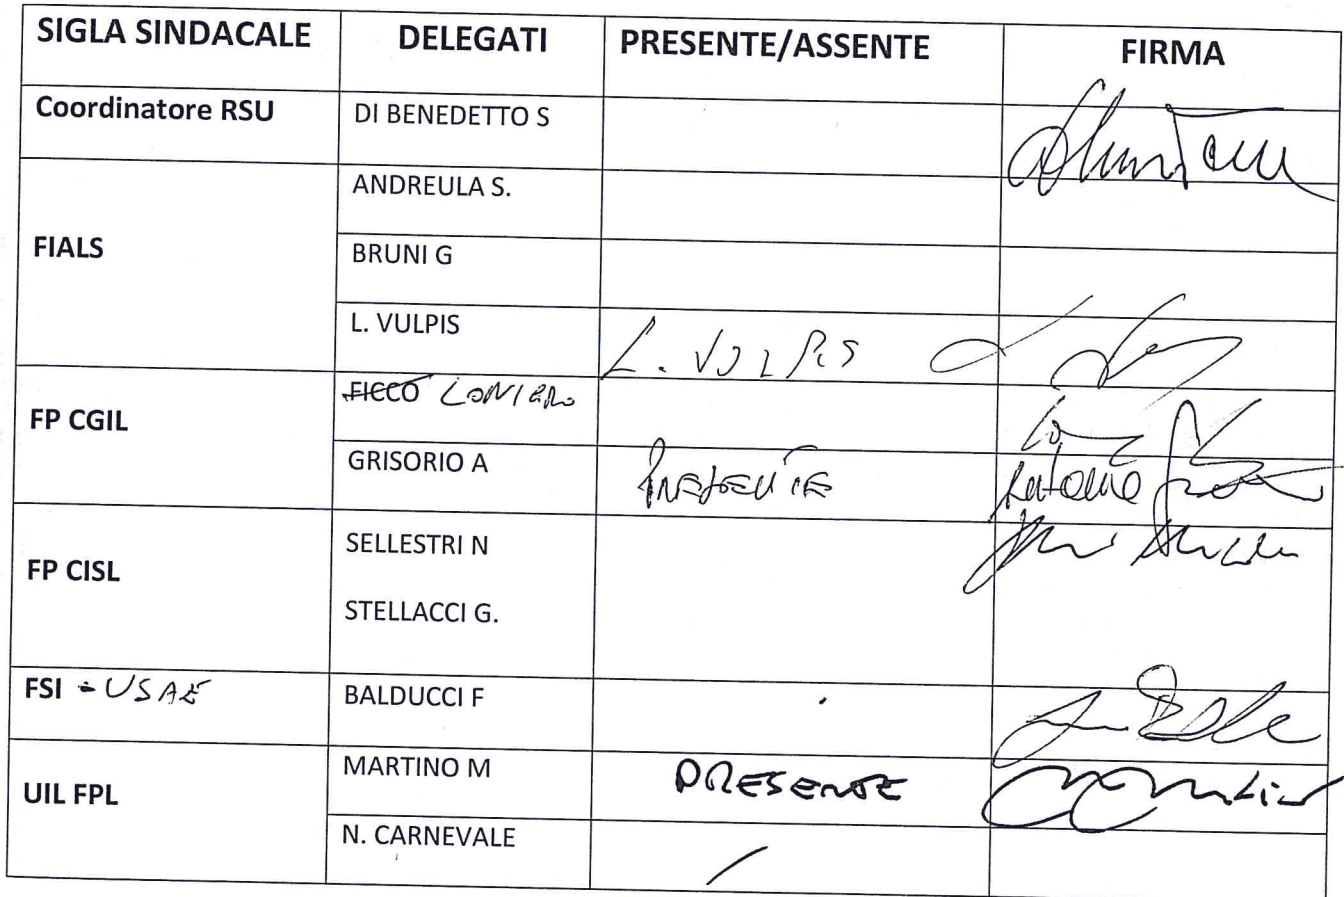 SIGLA SINDACALE DELEGATI PRESENTE/ASSENTE FIRMA
Coordinatore RSU DI BENEDETTO S
ANDREULA S.
FIALS BRUNI G
L. VULPIS L. VULPIS
FP CGIL FICCO LONIERO
GRISORIO A PRESENTE Antonio
FP CISL SELLESTRI N
STELLACCI G.
FSI - USAE BALDUCCI F
UIL FPL MARTINO M PRESENTE
N. CARNEVALE /